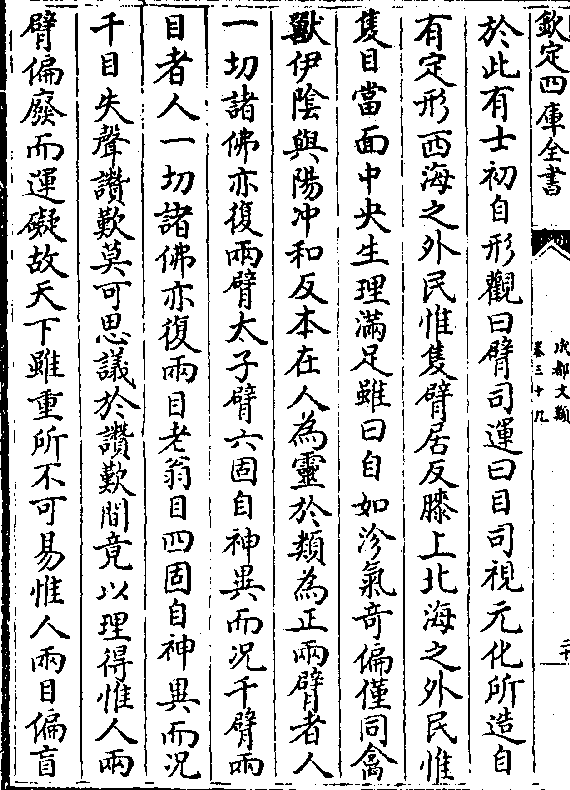 欽定四庫全書
成都文類
卷三十九
於此有士初自形觀曰臂司運曰目司視元化所造自
有定形西海之外民惟隻臂居反膝上北海之外民惟
隻目當面中央生理滿足雖曰自如沴氣奇偏僅同禽
獸伊陰與陽冲和反本在人為靈於類為正兩臂者人
一切諸佛亦復兩臂太子臂六固自神異而况千臂兩
目者人一切諸佛亦復兩目老翁目四固自神異而况
千目失聲讚歎莫可思議於讚歎間竟以理得惟人兩
臂偏廢而運礙故天下雖重所不可易惟人兩目偏盲